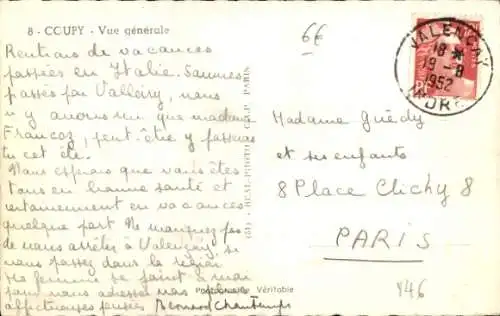 8 - COUPY - Vue générale
Rentrons de vacances
passées en Italie. Sommes
passés par Valloiry, nous
n'y avons vu que madame
Francoz, peut-être y passeras
tu cet été.
Nous espérons que vous êtes
tous en bonne santé et
certainement en vacances
quelque part Ne manquez pas
de nous arrêter à Valençay, si
vous passez dans la région
Ma femme se joint à moi
pour vous adresser nos
affectueuses pensées Bernard Chantemps
Véritable
PARIS
6€
VALENÇAY
18 *
19 - 8
1952
INDRE
Madame Guédy
et ses enfants
8 Place Clichy 8
PARIS
446